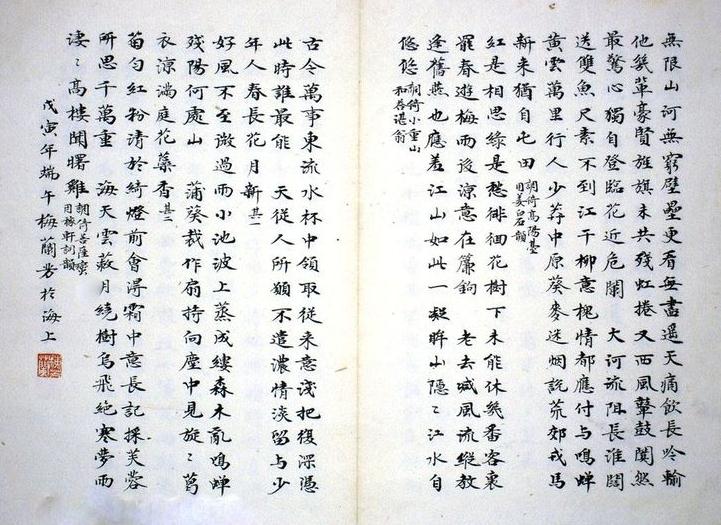 無限山河無窮壁壘更看無盡遙天痛飲長吟輸
他幾輩豪賢旌旗未共殘虹捲又西風鼙鼓闐然
最驚心獨自登臨花近危闌 大河流阻長淮闊
送雙魚尺素不到江干柳意槐情都應付与鳴蟬
黃雲萬里行人少莽中原葵麥迷烟説荒郊戎馬
新来猶自屯田 調倚高陽臺
用姜白石韻
紅是相思綠是愁徘徊花樹下未能休幾番客裏
罷春遊梅雨後涼意在簾鉤 老去減風流縱教
逢舊燕也應羞江山如此一凝眸山隱〻江水自
悠悠 調倚小重山
和湛翁
古今萬事東流水杯中領取從來意淺把復深憑
此時誰最能 天從人所願不遣濃情淡留与少
年人春長花月新 其一
好風不至微過雨小池波上蒸成縷森木亂鳴蟬
殘陽何處山 蒲葵裁作扇持向塵中見旋〻葛
衣涼滿庭花藥香 其二
勻紅粉清於綺燈前會得霜中意長記採芙蓉
所思千萬重 海天雲月繞樹烏飛絕寒夢雨
淒〻高樓聞曙雞 調倚菩薩蠻
用稼軒詞韻
戊寅年端午梅蘭芳於海上